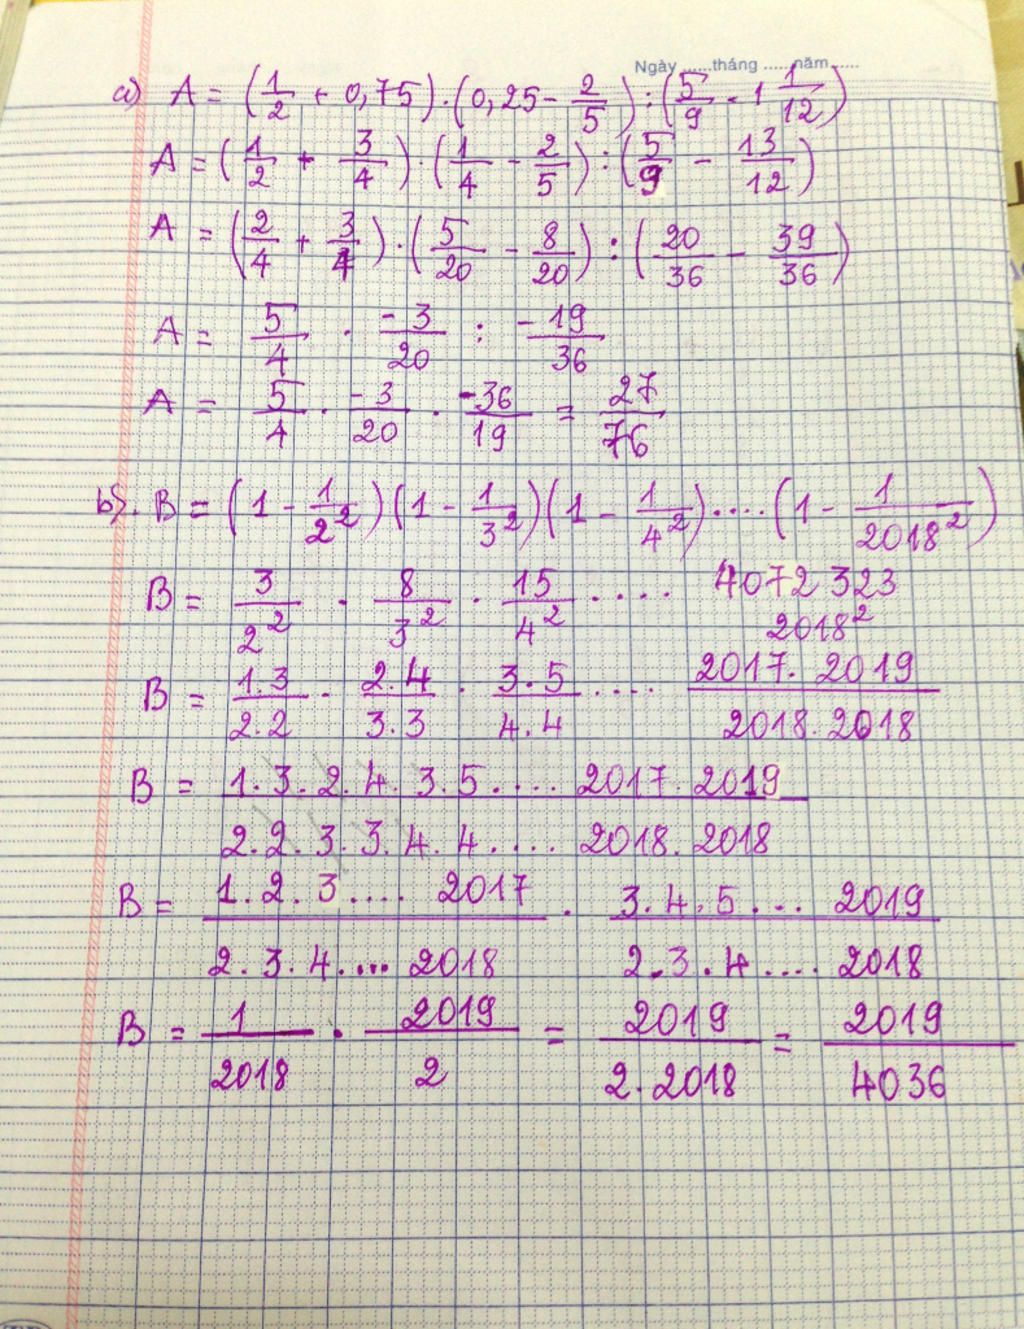 Ngày ......tháng ......năm......
a) A = (1/2 + 0,75) . (0,25 - 2/5) : (5/9 - 1 1/12)
A = (1/2 + 3/4) . (1/4 - 2/5) : (5/9 - 13/12)
A = (2/4 + 3/4) . (5/20 - 8/20) : (20/36 - 39/36)
A = 5/4 . -3/20 : -19/36
A = 5/4 . -3/20 . -36/19 = 27/76
b). B = (1 - 1/2²)(1 - 1/3²)(1 - 1/4²)....(1 - 1/2018²)
B = 3/2² . 8/3² . 15/4² .... 4072323/2018²
B = 1.3/2.2 . 2.4/3.3 . 3.5/4.4 .... 2017.2019/2018.2018
B = 1.3.2.4.3.5.... 2017.2019/2.2.3.3.4.4.... 2018.2018
B = 1.2.3.... 2017/2.3.4.... 2018 . 3.4.5... 2019/2.3.4.... 2018
B = 1/2018 . 2019/2 = 2019/2.2018 = 2019/4036